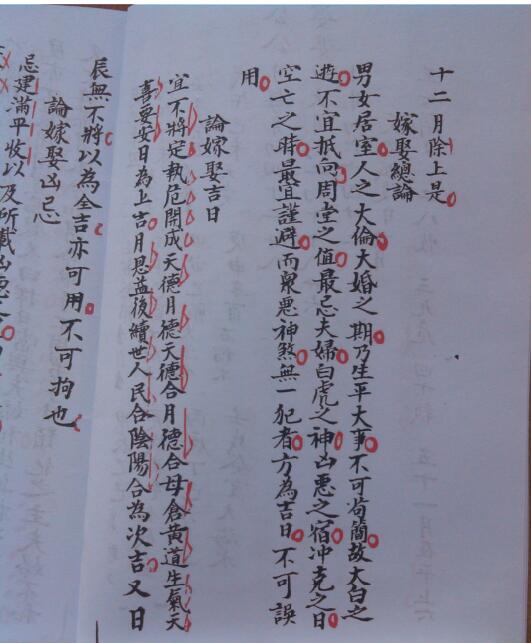 十二月除上是
嫁娶總論
男女居室人之大倫大婚之期乃生平大事不可苟簡故太白之
遊不宜抵向周堂之值最忌夫婦白虎之神凶惡之宿冲克之日
空亡之時最宜謹避而衆惡神煞無一犯者方為吉日不可誤
用
論嫁娶吉日
宜不將定執危開成天德月德天德合月德合母倉黃道生氣天
喜要安日為上吉月恩益後續世人民合陰陽合為次吉又日
辰無不將以為全吉亦可用不可拘也
論嫁娶凶忌
忌建滿平收以及所載凶